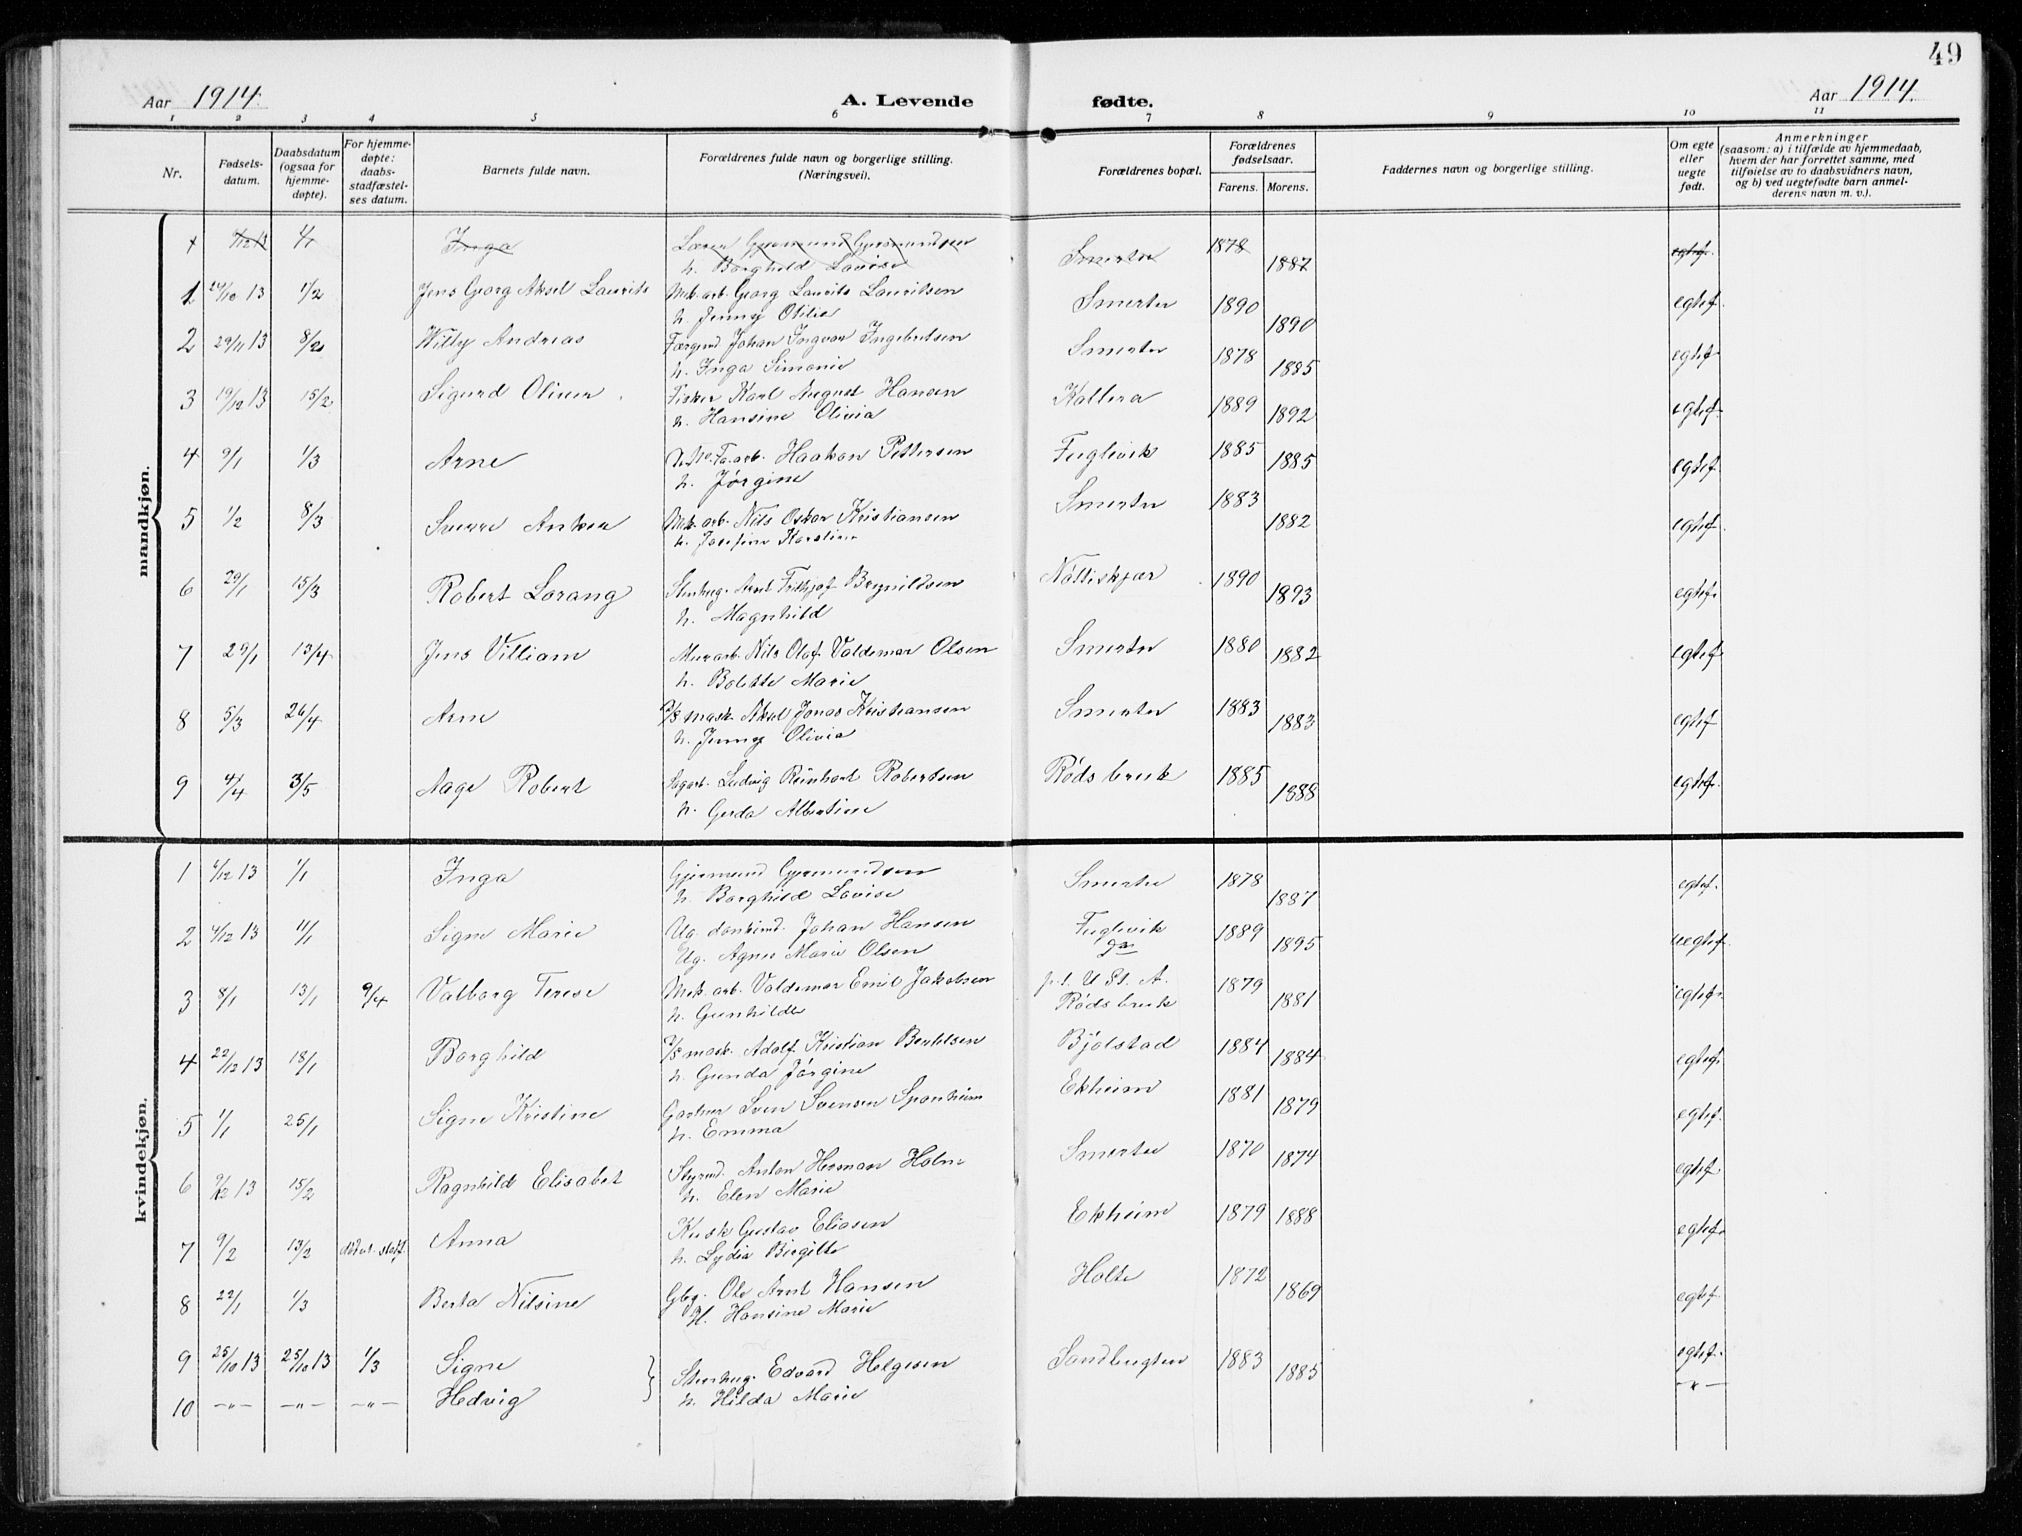 49
Aar 1914.
A. Levende fødte.
Aar 1914.
1 2 3 4 5 6 7 8 9 10 11
Nr.
Fødsels-
datum.
Daabsdatum
(ogsaa for
hjemme-
døpte).
For hjemme-
døpte:
daabs-
stadfæstel-
ses datum.
Barnets fulde navn.
Forældrenes fulde navn og borgerlige stilling.
(Næringsvei).
Forældrenes bopæl.
Forældrenes
fødselsaar.
Farens. Morens.
Faddernes navn og borgerlige stilling.
Om egte
eller
uegte
født.
Anmerkninger
(saasom: a) i tilfælde av hjemmedaab,
hvem der har forrettet samme, med
tilføielse av to daabsvidners navn,
og b) ved uegtefødte barn anmel-
derens navn m. v.).
mandkjøn.
1/1 Inga Gjermund Gjermundsen Smerter 1878 egtef.
h. Borghild Lovise 1887
1 24/10 13 1/2 Jens Georg Aksel Laurits Mek. arb. Georg Laurits Lauritsen Smerter 1890 egtef.
h. Jenny Otilie 1890
2 29/11 13 8/2 Willy Andreas Johan Ingvar Ingebretsen Smerter 1878 egtef.
h. Inga Simonie 1885
3 19/12 13 15/2 Sigurd Oliver Fisker Karl August Hansen Kallera 1889 egtef.
h. Hansine Olivia 1892
4 9/1 1/3 Arne Haakon Pettersen Fuglevik 1885 egtef.
h. Jørgine 1885
5 1/2 8/3 Sverre Anker Mek. arb. Nils Oskar Kristiansen Smerter 1883 egtef.
h. Josefine Karoline 1882
6 29/1 15/3 Robert Lorang Stenhug. Arnt Fritkjof Brynildsen Nøttiskjær 1890 egtef.
h. Magnhild 1893
7 29/1 13/4 Jens Villiam Murarb. Nils Olaf Valdemar Olsen Smerter 1880 egtef.
h. Bolette Marie 1882
8 5/3 26/4 Arne D/S mask. Aksel Jonas Kristiansen Smerter 1883 egtef.
h. Jenny Olivia 1883
9 4/4 3/5 Aage Robert Sagarb. Ludvig Reinhart Robertsen Røds bruk 1885 egtef.
h. Gerda Albertine 1888
kvindekjøn.
1 1/12 13 1/1 Inga Gjermund Gjermundsen Smerter 1878 egtef.
h. Borghild Lovise 1887
2 4/12 13 11/1 Signe Marie Ug. Johan Hansen Fuglevik 1889 uegtef.
Ug. Agnes Marie Olsen 1895
3 8/1 13/1 9/4 Valborg Terese Mek. arb. Valdemar Emil Jakobsen p.t. U. St. A. 1879 egtef.
h. Gunhilde Røds bruk 1881
4 22/12 13 18/1 Borghild D/S mask. Adolf Kristian Bentelsen Bjølstad 1884 egtef.
h. Gunda Jørgine 1884
5 1/1 25/1 Signe Kristine Gartner Sven Svensen Sponheim Ekheim 1881 egtef.
h. Emma 1879
6 9/12 13 15/2 Ragnhild Elisabet Styrmd. Anton Herman Holm Smerter 1870 egtef.
h. Elen Marie 1874
7 9/2 13/2 Anna Kusk Gustav Eliasen Ekheim 1879 egtef.
h. Lydia Birgitte 1888
8 22/1 1/3 Berta Nilsine Gbg. Ole Arnt Hansen Holte 1872 egtef.
H. Hansine Marie 1869
9 25/10 13 25/10 13 1/3 Signe Stenhug. Edvard Helgesen Sandbugten 1883 egtef.
10 -"- -"- -"- Hedvig h. Hilda Marie 1885 -"-